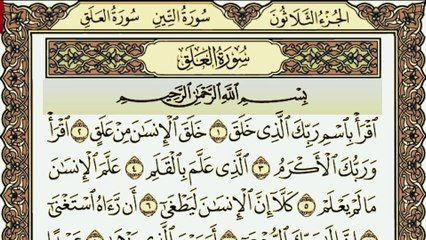 الجزء الثلاثون سورة التين سورة العلق
سورة العلق
بسم الله الرحمن الرحيم
ٱقۡرَأۡ بِٱسۡمِ رَبِّكَ ٱلَّذِي خَلَقَ ١ خَلَقَ ٱلۡإِنسَٰنَ مِنۡ عَلَقٍ ٢ ٱقۡرَأۡ
وَرَبُّكَ ٱلۡأَكۡرَمُ ٣ ٱلَّذِي عَلَّمَ بِٱلۡقَلَمِ ٤ عَلَّمَ ٱلۡإِنسَٰنَ
مَا لَمۡ يَعۡلَمۡ ٥ كَلَّآ إِنَّ ٱلۡإِنسَٰنَ لَيَطۡغَىٰٓ ٦ أَن رَّءَاهُ ٱسۡتَغۡنَىٰٓ